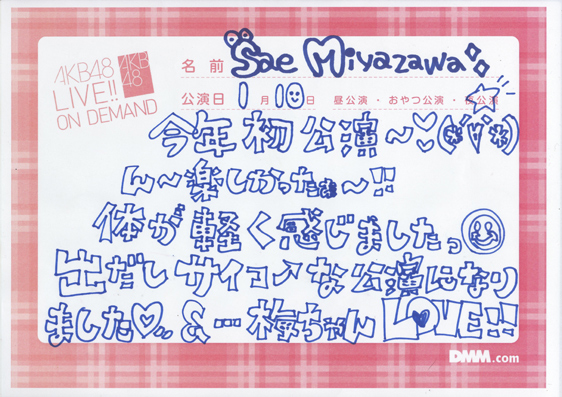 AKB48
LIVE!!
ON DEMAND
AKB
48
名前 Sae Miyazawa
公演日 1月10日 昼公演・おやつ公演・夜公演
今年初公演~♡(*'∀'*)
ん~楽しかったぁ~!!
体が軽く感じましたっ
出だしサイコー↗な公演になり
ました♡、、&…梅ちゃんLOVE!!
DMM.com